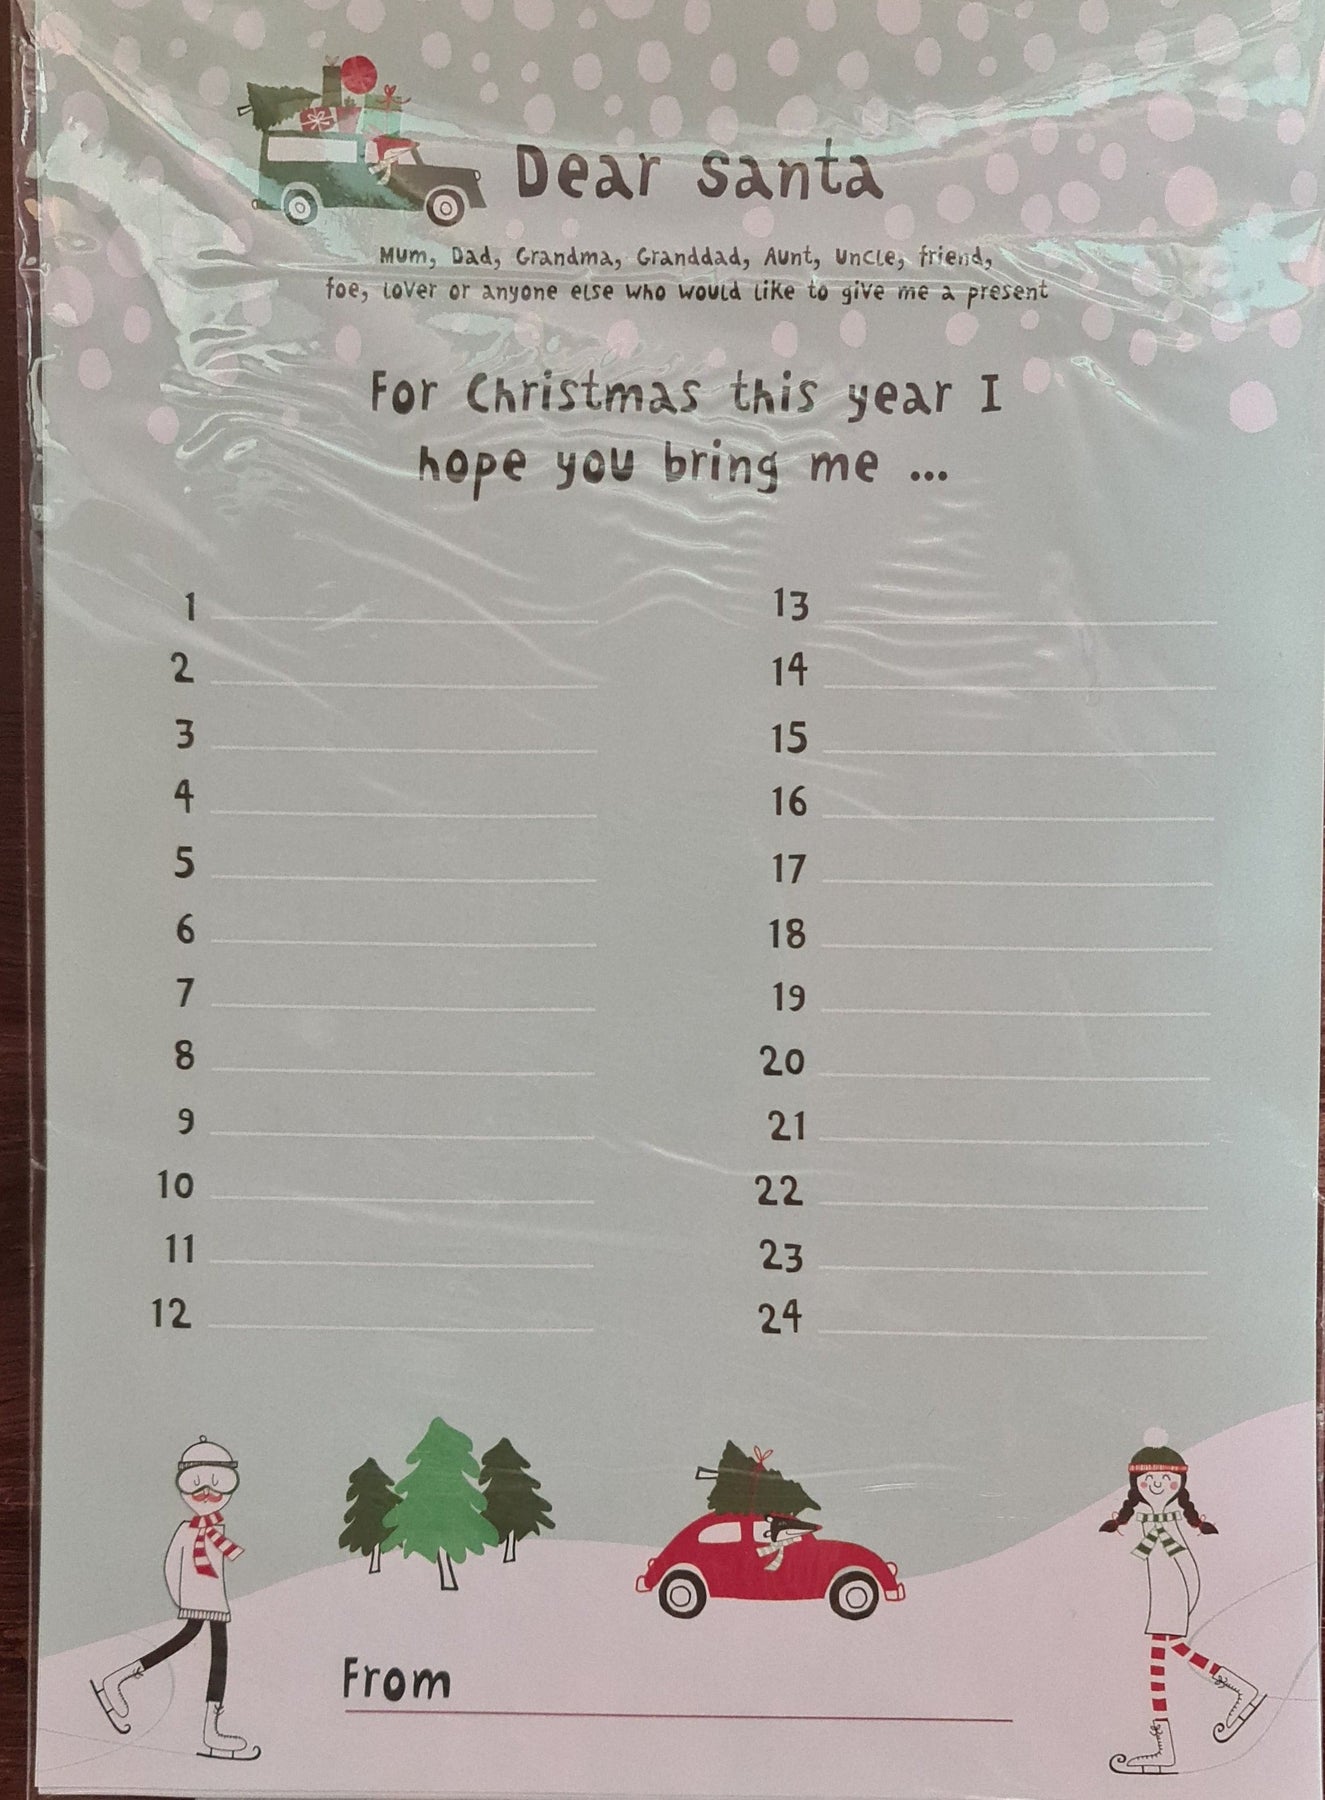 Dear Santa
Mum, Dad, Grandma, Granddad, Aunt, Uncle, friend,
foe, lover or anyone else who would like to give me a present
For Christmas this year I
hope you bring me ...
1
2
3
4
5
6
7
8
9
10
11
12
13
14
15
16
17
18
19
20
21
22
23
24
From